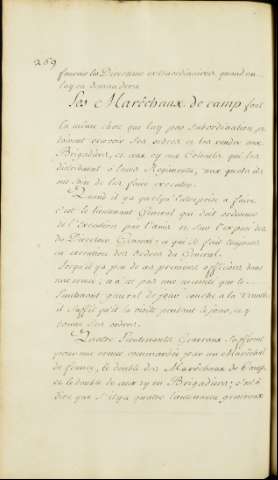 269
fournir la Direction extraordinaire, quand on
luy en demandera.
Les Marêchaux de camp font
la même chose que luy par subordination,
doivent recevoir ses ordres et les rendre aux
Brigadiers, et ceux cy aux Colonels qui les
distribuent à leurs Regimens, aux quels ils
ont soin de les faire executer.
Quand il y a quelque Entreprise à faire
c'est le lieutenant General qui doit ordonner
de l'Execution par l'avis et sur l'exposé
du Directeur General; ce qui se fait toujours
en execution des Ordres du General.
Lorsqu'il y a peu de ces premiers officiers dans
une armée, il n'est pas necessaire que le
Lieutenant general de jour couche à la Tranchée
il suffit qu'il la visite pendant le jour, et y
donne ses ordres.
Quatre Lieutenants Generaux suffisent
pour une armée commandée par un Marêchal
de france, le double des Marêchaux de Camp,
et le double de ceux cy en Brigadiers; c'est à
dire que s'il y a quatre lieutenants generaux